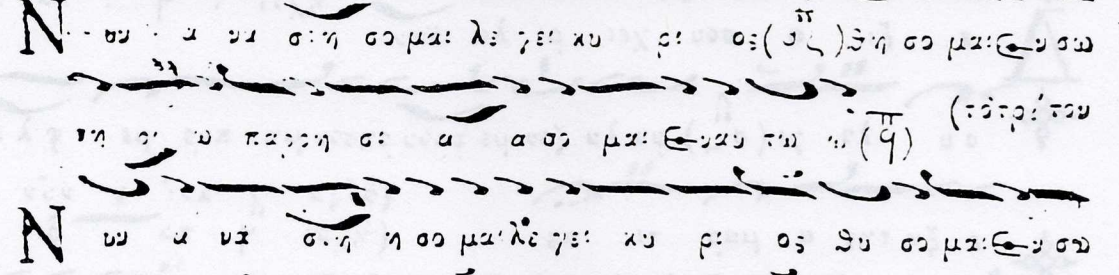 Νυν α να στη σο μαι λε γει κυ ρι ος θη σο μαι εν σω
τη ρι ω παρρη σι α α σο μαι εν αυ τω
Νυν α να στη η σο μαι λε γει κυ ρι ος θη σο μαι εν σω